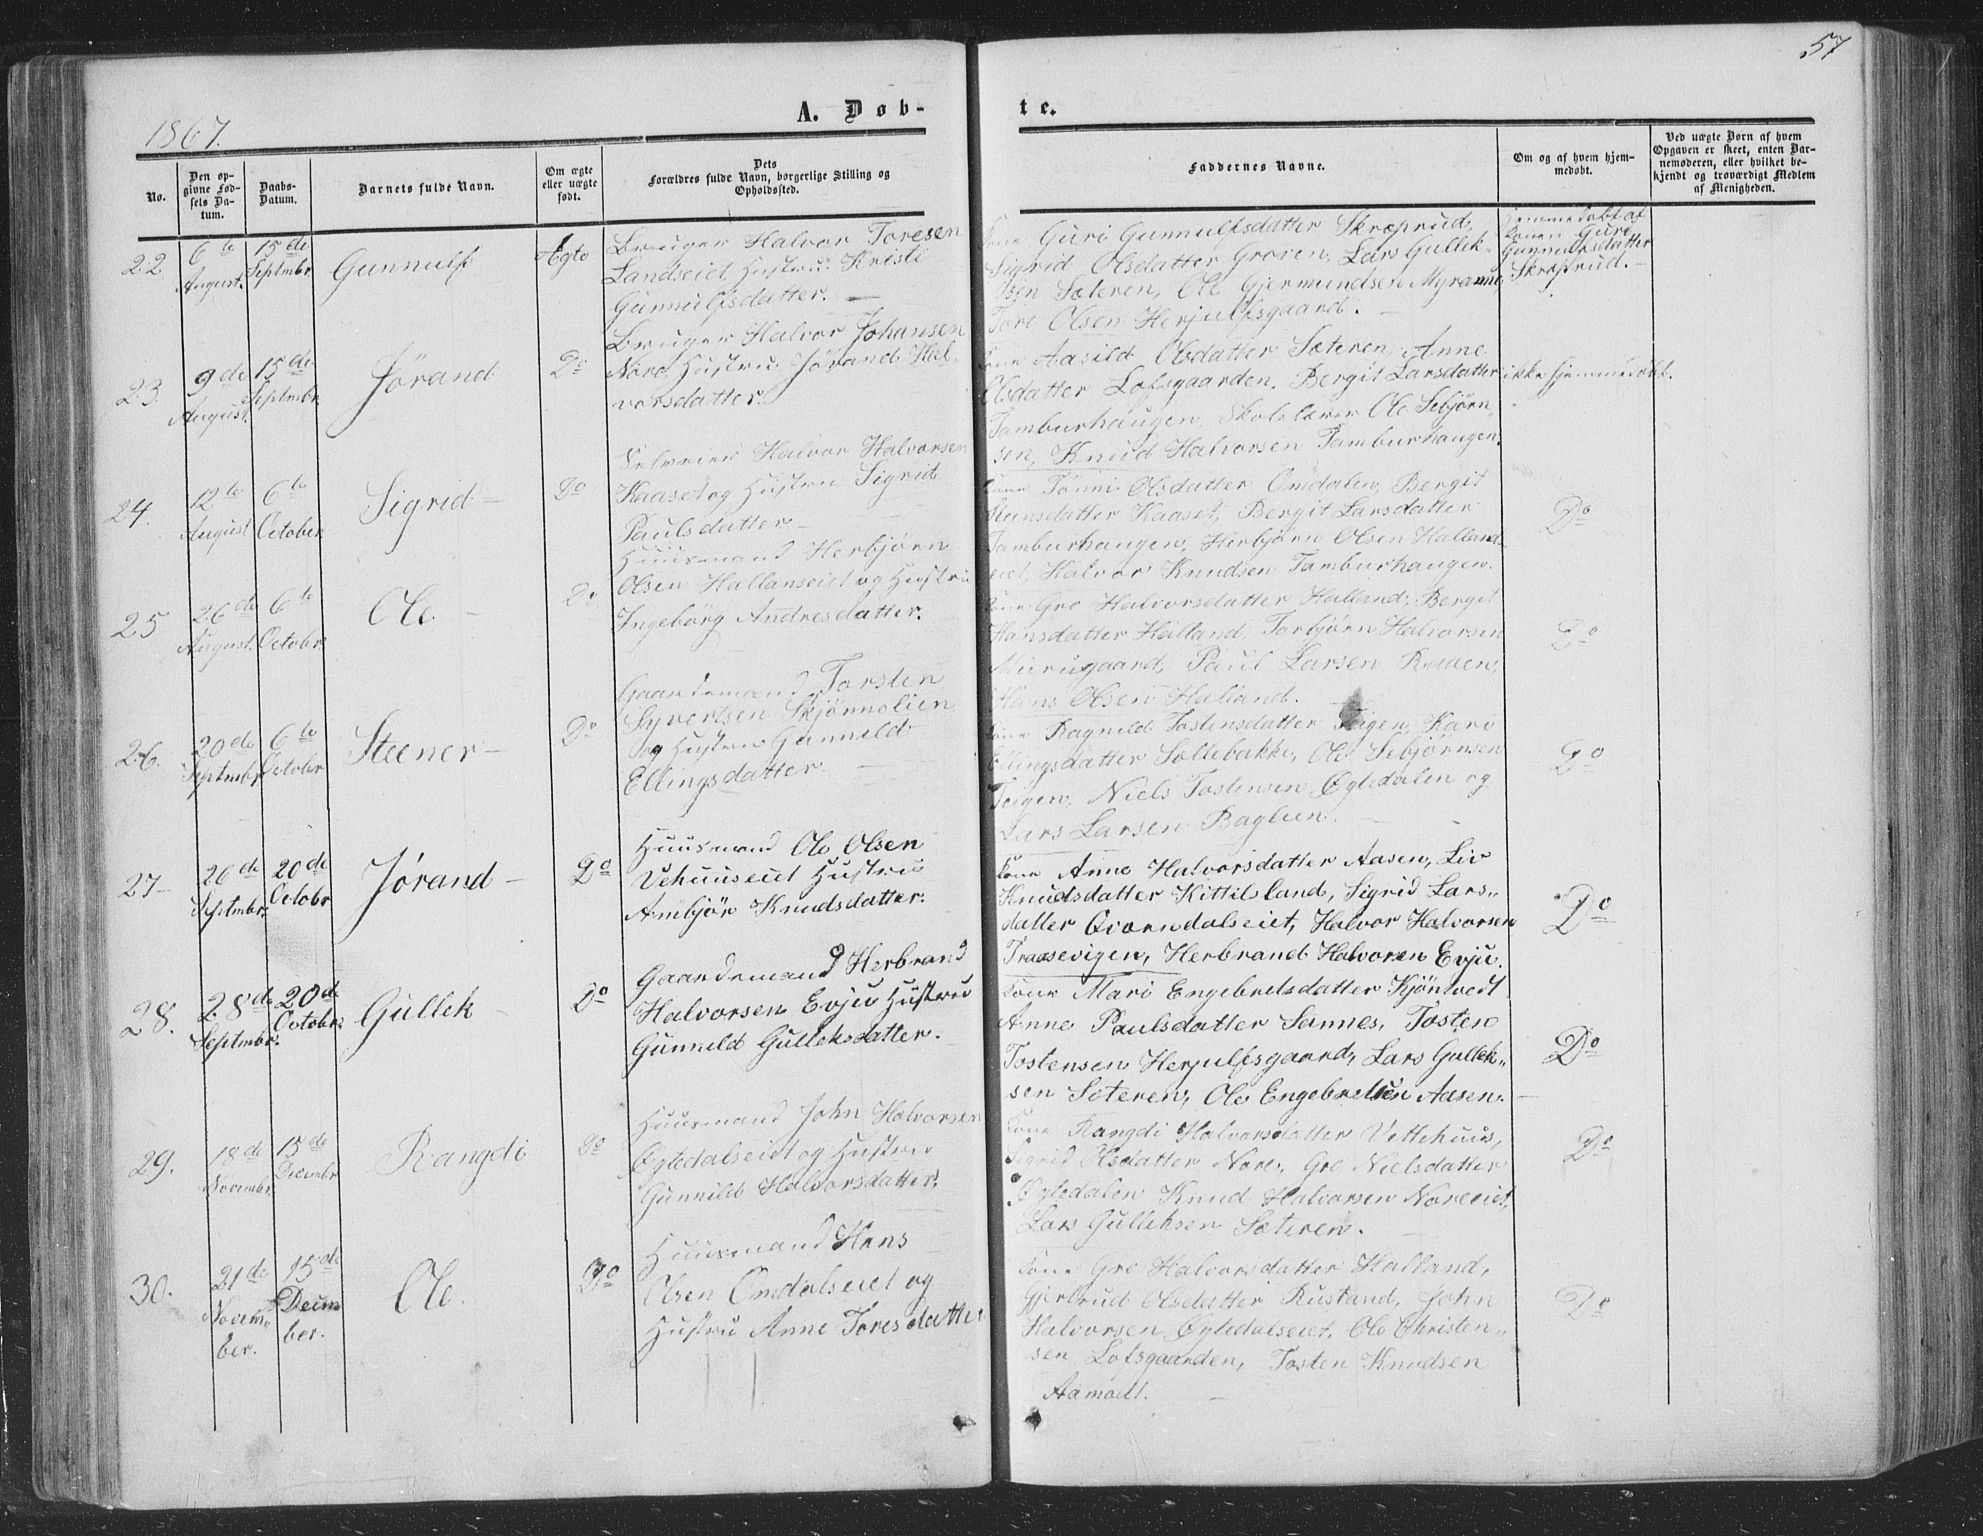 57
1867.
A. Døb-
te.
No.
Den op-
givne Fød-
sels Da-
tum.
Daabs-
Datum.
Barnets fulde Navn.
Om ægte
eller uægte
født.
Dets
Forældres fulde Navn, borgerlige Stilling og
Opholdssted.
Faddernes Navne.
Om og af hvem hjem-
medøbt.
Ved uægte Børn af hvem
Opgaven er skeet, enten Bar-
nemoderen, eller hvilket be-
kjendt og troværdigt Medlem
af Menigheden.
22
6te
August.
15de
Septmbr.
Gunnulf
Ægte
Bruger Halvor Toresen
Landseiet Hustru Kristi
Gunnulfsdatter. —
Kone Guri Gunnulfsdatter Skræprud,
Sigrid Olsdatter Groven, Lars Gullek-
sen Sæteren, Ole Gjermundsen Myranne,
Tore Olsen Herjulfsgaard. —
Hjemmedøbt af
Konen Guri
Gunnulfsdatter
Skræprud. —
23
9de
August.
15de
Septmbr.
Jørand
Do
Bruger Halvor Johansen
Nore, Hustru Jørand Hal-
vorsdatter.
Kone Aasild Olsdatter Sæteren, Anne
Olsdatter Lofsgaarden, Bergit Larsdatter
Tamburhaugen, Skolelærer Ole Sebjørn-
sen, Knud Halvorsen Tamburhaugen.
ikke hjemmedøbt.
24.
12te
August
6te
October
Sigrid —
Do
Selveier Halvor Halvorsen
Kaaset og Hustru Sigrid
Paulsdatter —
Kone Tonni Olsdatter Omdalen, Bergit
Hansdatter Kaaset, Bergit Larsdatter
Tamburhaugen, Herbjørn Olsen Halland-
eiet, Halvor Knudsen Tamburhaugen.
Do
25
26de
August.
6te
Octobr.
Ole —
Do
Huusmand Herbjørn
Olsen Hallanseiet og Hustru
Ingebörg Andresdatter.
Kone Gro Halvorsdatter Halland, Bergit
Hansdatter Halland, Torbjørn Halvorsen
Murugaard, Paul Larsen Raaen,
Hans Olsen Halland.
Do
26.
20de
Septmbr.
6te
Octobr
Steener —
Do
Gaardemand Torsten
Syvertsen Skjønnolien
og Hustru Gunnild
Ellingsdatter. —
Kone Ragnild Tostensdatter Teigen, Kari
Ellingsdatter Sollebakke, Ole Sebjørnsen
Teigen, Niels Tostensen Øgledalen og
Lars Larsen Baglien.
Do
27
26de
Septmbr.
20de
Octobr
Jørand —
Do
Huusmand Ole Olsen
Vehuuseiet Hustru
Ambjør Knudsdatter.
Kone Anne Halvorsdatter Aasen, Liv
Knudsdatter Kittilsland, Sigrid Lars-
datter Qværndalseiet, Halvor Halvorsen
Traasevigen, Herbrand Halvorsen Evju.
Do
28.
28de
Septmbr.
20de
Octobr.
Gullek —
Do
Gaardemand Herbrand
Halvorsen Evju Hustru
Gunnild Gulleksdatter.
Kone Mari Engebretsdatter Kjöntvedt
Anne Paulsdatter Sannes, Tosten
Tostensen Herjulfsgaard, Lars Gullek-
sen Sæteren, Ole Engebretsen Aasen. —
Do
29.
18de
Novembr.
15de
Decembr
Rangdi
Do
Huusmand John Halvorsen
Øgledalseiet og Hustru
Gunnild Halvorsdatter.
Kone Rangdi Halvorsdatter Vettehuus,
Sigrid Olsdatter Nore, Gro Nielsdatter
Øgledalen Knud Halvorsen Noreeiet,
Lars Gulleksen Sæteren. —
Do
30.
21de
Novem-
ber.
15de
Decem
ber.
Ole.
Do
Huusmand Hans
Olsen Omdalseiet og
Hustru Anne Toresdatter
Kone Gro Halvorsdatter Halland,
Gjertrud Olsdatter Rustand, John
Halvorsen Øgledalseiet, Ole Christen-
sen Lofsgaarden, Tosten Knudsen
Aamodt. —
Do